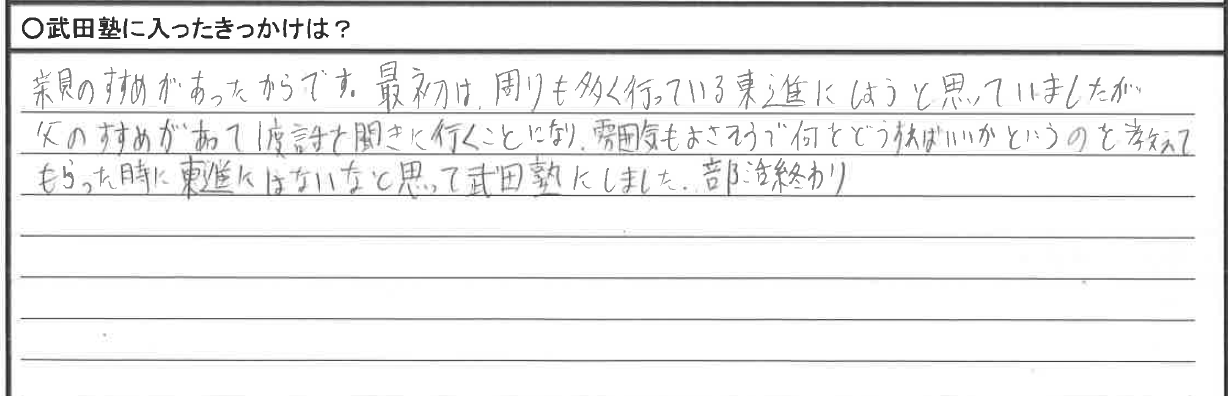 ○武田塾に入ったきっかけは？
親のすすめがあったからです。最初は、周りも多く行っている東進にしようと思っていましたが
父のすすめがあって1度話を聞きに行くことになり、雰囲気もよさそうで何をどうすればいいかというのを教えて
もらった時に東進にはないなと思って武田塾にしました。部活終わり